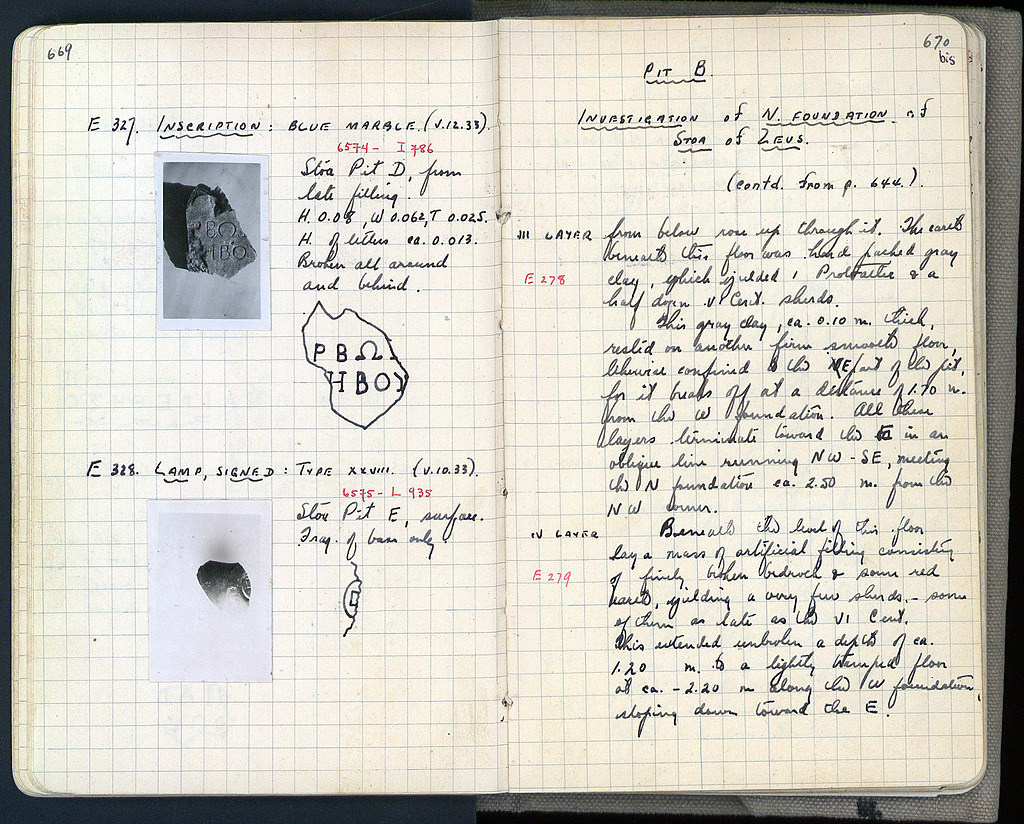 669
E 327. INSCRIPTION: BLUE MARBLE. (V.12.33).
6574 - I 786
Stoa Pit D, from
late filling.
H. 0.08, W 0.062, T 0.025.
H. of letters ca. 0.013.
Broken all around
and behind.
ΡΒΩ
ΗΒΟ
E 328. LAMP, SIGNED: TYPE XXVIII. (V.10.33).
6575 - L 935
Stoa Pit E, surface.
Frag. of base only
670
bis
PIT B.
INVESTIGATION of N. FOUNDATION of
STOA of ZEUS.
(contd. from p. 644.).
III LAYER from below rose up through it. The earth
beneath this floor was hard packed gray
E 278
clay, which yielded 1 Protoattic & a
half dozen V Cent. sherds.
This gray clay, ca. 0.10 m. thick,
rested on another firm smooth floor,
likewise confined to the NE part of the pit,
for it breaks off at a distance of 1.70 m.
from the W foundation. All these
layers terminate toward the E in an
oblique line running NW - SE, meeting
the N foundation ca. 2.50 m. from the
NW corner.
IV LAYER Beneath the level of this floor
lay a mass of artificial filling consisting
E 279
of finely broken bedrock & some red
earth, yielding a very few sherds, - some
of them as late as the VI Cent.
This extended unbroken a depth of ca.
1.20 m. to a lightly tramped floor
at ca. - 2.20 m along the W foundation,
sloping down toward the E.